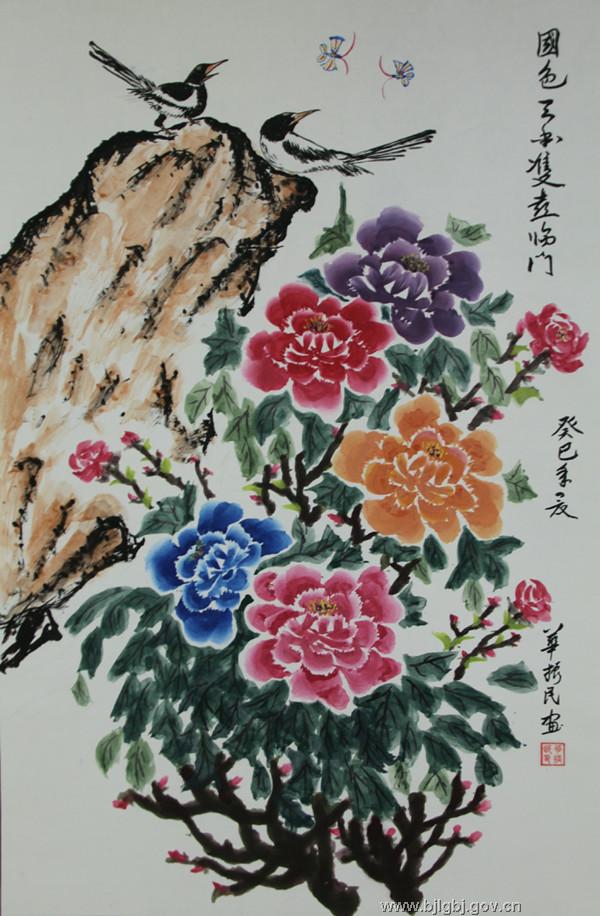 國色天香雙喜临门
癸巳年夏
華振民画
www.bjlgbj.gov.cn